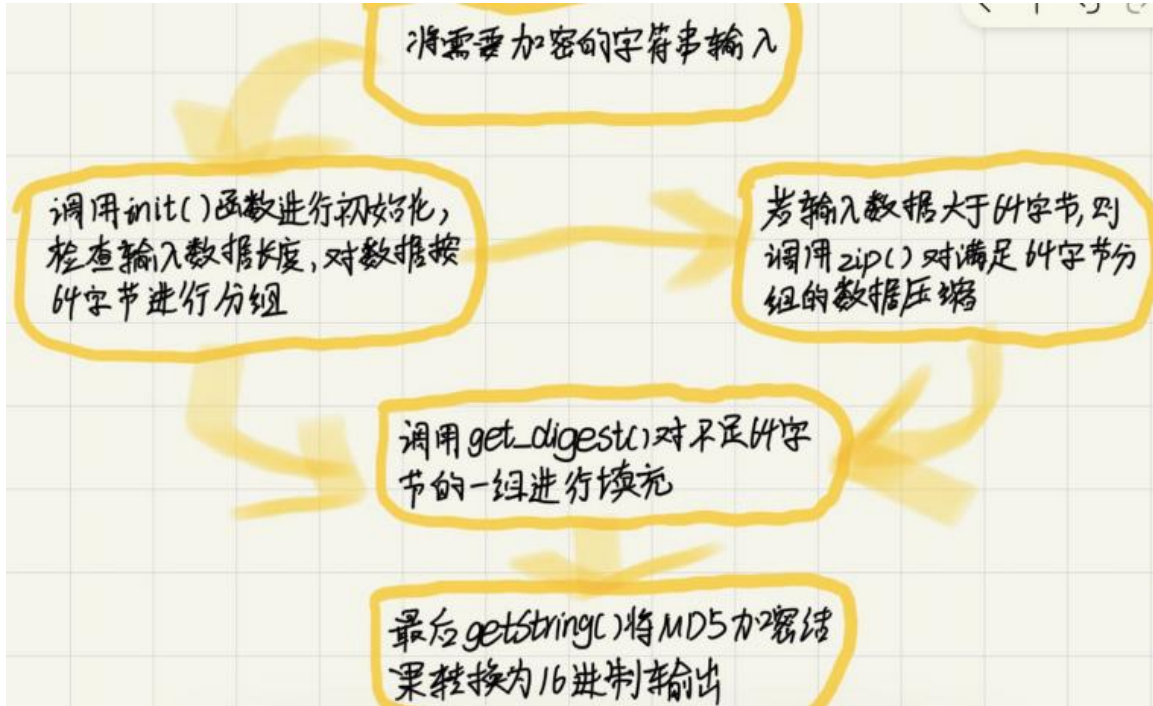 将需要加密的字符串输入
调用init()函数进行初始化,
检查输入数据长度,对数据按
64字节进行分组
若输入数据大于64字节,则
调用zip()对满足64字节分
组的数据压缩
调用get_digest()对不足64字
节的一组进行填充
最后getString()将MD5加密结
果转换为16进制输出